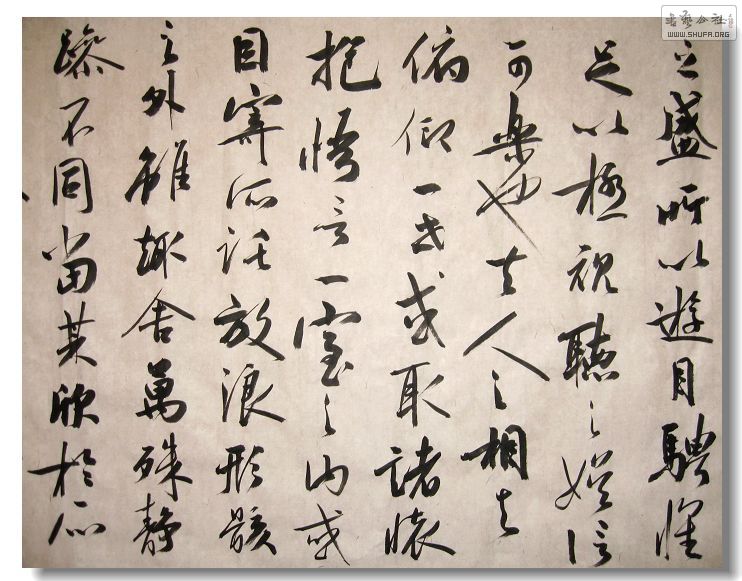 书艺公社
WWW.SHUFA.ORG
之盛所以遊目騁懷
足以極視聽之娱信
可樂也夫人之相与
俯仰一世或取諸懷
抱悟言一室之内或
因寄所託放浪形骸
之外雖趣舍萬殊静
躁不同當其欣於所